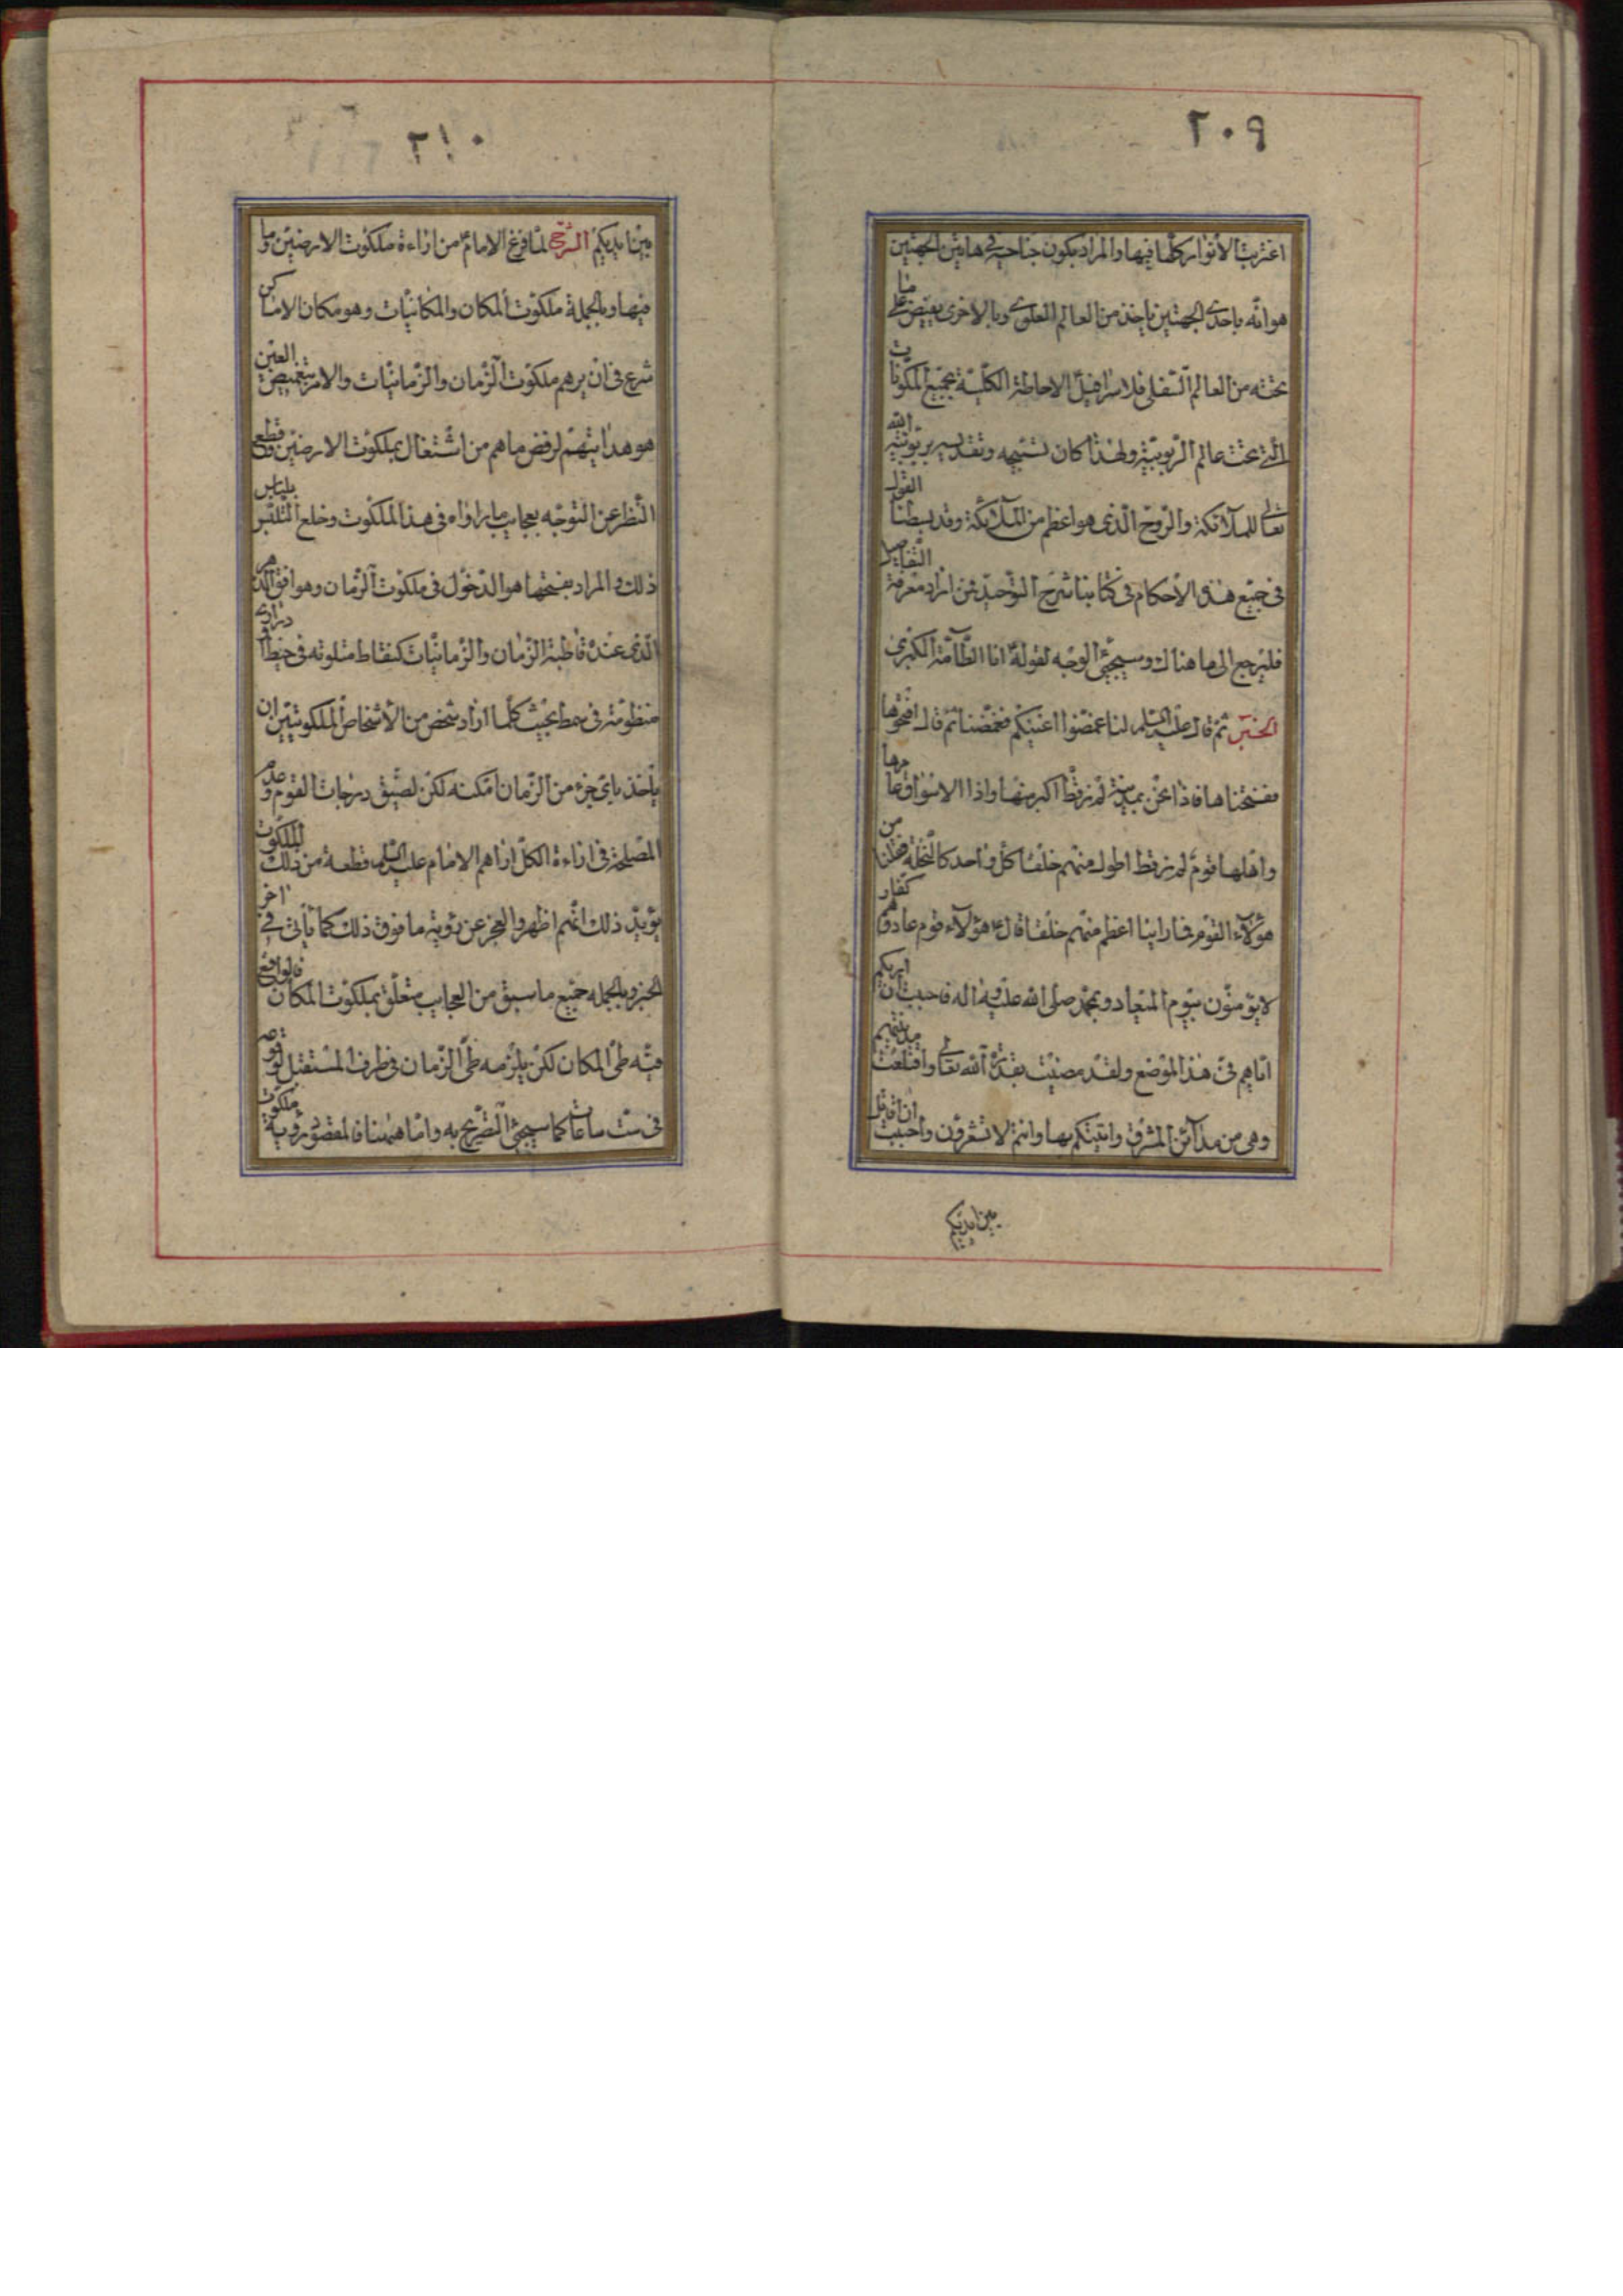 ٢٠٩
اغتربت الأنوار كلها فيها والمراد بكون جناحيه في هاتين الجهتين
هو انّه باحدى الجهتين ياخذ من العالم العلوي وبالاخرى يفيض على ما
تحته من العالم السفلي فلاسرافيل الاحاطة الكلية بجميع المكونات
التي تحت عالم الربوبية ولهذا كان تسبيحه وتقديسه بربوبية الله
تعالى للملائكة والروح الذي هو اعظم من الملائكة وقد بسطنا القول
في جميع هذه الأحكام في كتابنا شرح التوحيد من اراد معرفة التفاصيل
فليرجع الى ما هناك وسيجيئ الوجه لقوله انا الطآمة الكبرى
الخبر ثم قال عليه السلم لنا غمضوا اعينكم فغمضنا ثم قال افتحوها
ففتحناها فاذا نحن بمدينة لم نر قط اكبر منها واذا الاسواق فيها
واهلها قوم لم نر قط اطول منهم خلقا كل واحد كالنخلة فقلنا من
هؤلآء القوم فما راينا اعظم منهم خلقا قال ع هؤلآء قوم عاد وهم كفار
لا يؤمنون بيوم الميعاد وبمحمد صلى الله عليه واله فاحببت ان اريكم
اياهم في هذا الموضع ولقد مضيت بقدرة الله تعالى واقتلعت مدينتهم
وهي من مدآئن المشرق واتيتكم بها وانتم لا تشعرون واحببت ان اقاتل
بين ايديكم
٢١٠
بين ايديكم الشرح لما فرغ الامام من ارآءة ملكوت الارضين وما
فيها وبالجملة ملكوت المكان والمكانيات وهو مكان الاماكن
شرع في ان يريهم ملكوت الزمان والزمانيات والامر بتغميض العين
هو هدايتهم لرفض ما هم من اشتغال بملكوت الارضين وقطع
النظر عن التوجه بعجايب ما راواه في هذا الملكوت وخلع التلبس بلباس
ذلك والمراد بفتحها هو الدخول في ملكوت الزمان وهو افق الدهر
الذي عنده قاطبة الزمان والزمانيات كنقاط متلوته في خيط او دراري
منظومة في سمط بحيث كلما اراد شخص من الأشخاص الملكوتيين ان
ياخذ باي جزء من الزمان امكنه لكن لضيق درجات القوم وعدم
المصلحة في ارآءة الكل اراهم الامام عليه السلم قطعة من ذلك الملكوت
يؤيد ذلك انهم اظهروا العجز عن رؤية ما فوق ذلك كما ياتي في اخر
الخبر وبالجمله جميع ما سبق من العجايب متعلق بملكوت المكان فالواقع
فيه طي المكان لكن يلزمه طي الزمان في طرف المستقبل لوقوعه
في ست ساعات كما سيجيئ التصريح به واما هيهنا فالمقصود رؤية ملكوت